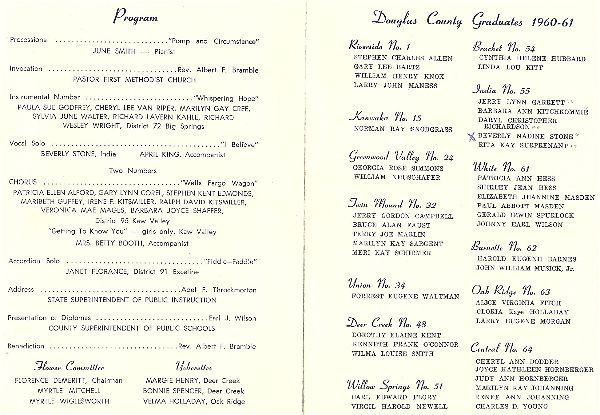 Program
Processions ........................ "Pomp and Circumstance"
JUNE SMITH — Pianist
Invocation ........................ Rev. Albert F. Bramble
PASTOR FIRST METHODIST CHURCH
Instrumental Number ........................ "Whispering Hope"
PAULA SUE GODFREY, CHERYL LEE VAN RIPER, MARILYN GAY CREE,
SYLVIA JUNE WALTER, RICHARD LAVERN KAHLE, RICHARD
WESLEY WRIGHT, District 72 Big Springs
Vocal Solo ........................ "I Believe"
BEVERLY STONE, India APRIL KING, Accompanist
Two Numbers
CHORUS ........................ "Wells Fargo Wagon"
PATRICIA ELLEN ALFORD, GARY LYNN COREL, STEPHEN KENT EDMONDS,
MARIBETH GUFFEY, IRENE F. KITSMILLER, RALPH DAVID KITSMILLER,
VERONICA MAE MAGES, BARBARA JOYCE SHAFFER,
District 95 Kaw Valley
"Getting To Know You" — girls only, Kaw Valley
MRS. BETTY BOOTH, Accompanist
Accordion Solo ........................ "Fiddle-Faddle"
JANET FLORANCE, District 91 Excelsior
Address ........................ Adel F. Throckmorton
STATE SUPERINTENDENT OF PUBLIC INSTRUCTION
Presentation of Diplomas ........................ Earl J. Wilson
COUNTY SUPERINTENDENT OF PUBLIC SCHOOLS
Benediction ........................ Rev. Albert F. Bramble
Flower Committee
FLORENCE DEMERITT, Chairman
MYRTLE MITCHELL
MYRTLE WIGLESWORTH
Usherettes
MARGIE HENRY, Deer Creek
BONNIE SPENCER, Deer Creek
VELMA HOLLADAY, Oak Ridge
Douglas County Graduates 1960-61
Riverside No. 1
STEPHEN CHARLES ALLEN
GARY LEE BARTZ
WILLIAM HENRY KNOX
LARRY JOHN MANESS
Kanwaka No. 15
NORMAN RAY SNODGRASS
Greenwood Valley No. 24
GEORGIA ROSE SIMMONS
WILLIAM NEUSCHAFER
Twin Mound No. 32
JERRY GORDON CAMPBELL
BRUCE ALAN FAUST
TERRY JOE MARLIN
MARILYN KAY SARGENT
MERI KAY
Union No. 34
FORREST EUGENE WALTMAN
Deer Creek No. 48
DOROTHY ELAINE KENT
KENNETH FRANK O'CONNOR
WILMA LOUISE SMITH
Willow Springs No. 51
EARL EDWARD FLORY
VIRGIL HAROLD NEWELL
Bracket No. 54
CYNTHIA HELENE HUBBARD
LINDA LOU KITT
India No. 55
JERRY LYNN GARRETT
BARBARA ANN KITCHKOMMIE
DARYL CHRISTOPHER
RICHARDSON
BEVERLY NADINE STONE
RITA KAY SUEPRENANT
White No. 61
PATRICIA ANN HESS
SHIRLEY JEAN HESS
ELIZABETH JEANNINE MASDEN
PAUL ABBOTT MASDEN
GERALD IRWIN SPURLOCK
JOHNNY EARL WILSON
Burnette No. 62
HAROLD EUGENE BARNES
JOHN WILLIAM MUSICK, Jr.
Oak Ridge No. 63
ALICE VIRGINIA FITCH
GLORIA Kaye HOLLADAY
LARRY EUGENE MORGAN
Central No. 64
CHERYL ANN DODDER
JOYCE KATHLEEN HORNBERGER
JUDY ANN HORNBERGER
MARILYN KAY JOHANNING
RENEE ANN JOHANNING
CHARLES D. YOUNG